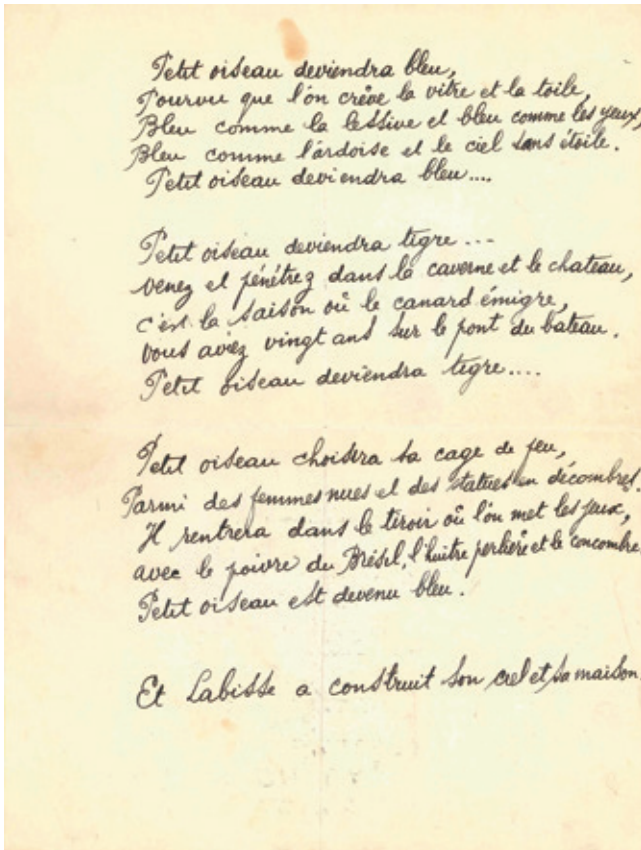 Petit oiseau deviendra bleu,
Pourvu que l'on crêve la vitre et la toile,
Bleu comme la lessive et bleu comme les yeux,
Bleu comme l'ardoise et le ciel sans étoile.
Petit oiseau deviendra bleu....
Petit oiseau deviendra tigre...
venez et pénétrez dans la caverne et le chateau,
c'est la saison où le canard émigre,
vous avez vingt ans sur le pont du bateau.
Petit oiseau deviendra tigre....
Petit oiseau choisira sa cage de feu,
Parmi des femmes nues et des statues en décombres.
Il rentrera dans le tiroir où l'on met les jeux,
avec le poivre du Brésil, l'huitre perlière et le concombre
Petit oiseau est devenu bleu.
Et Labisse a construit son ciel et sa maison.